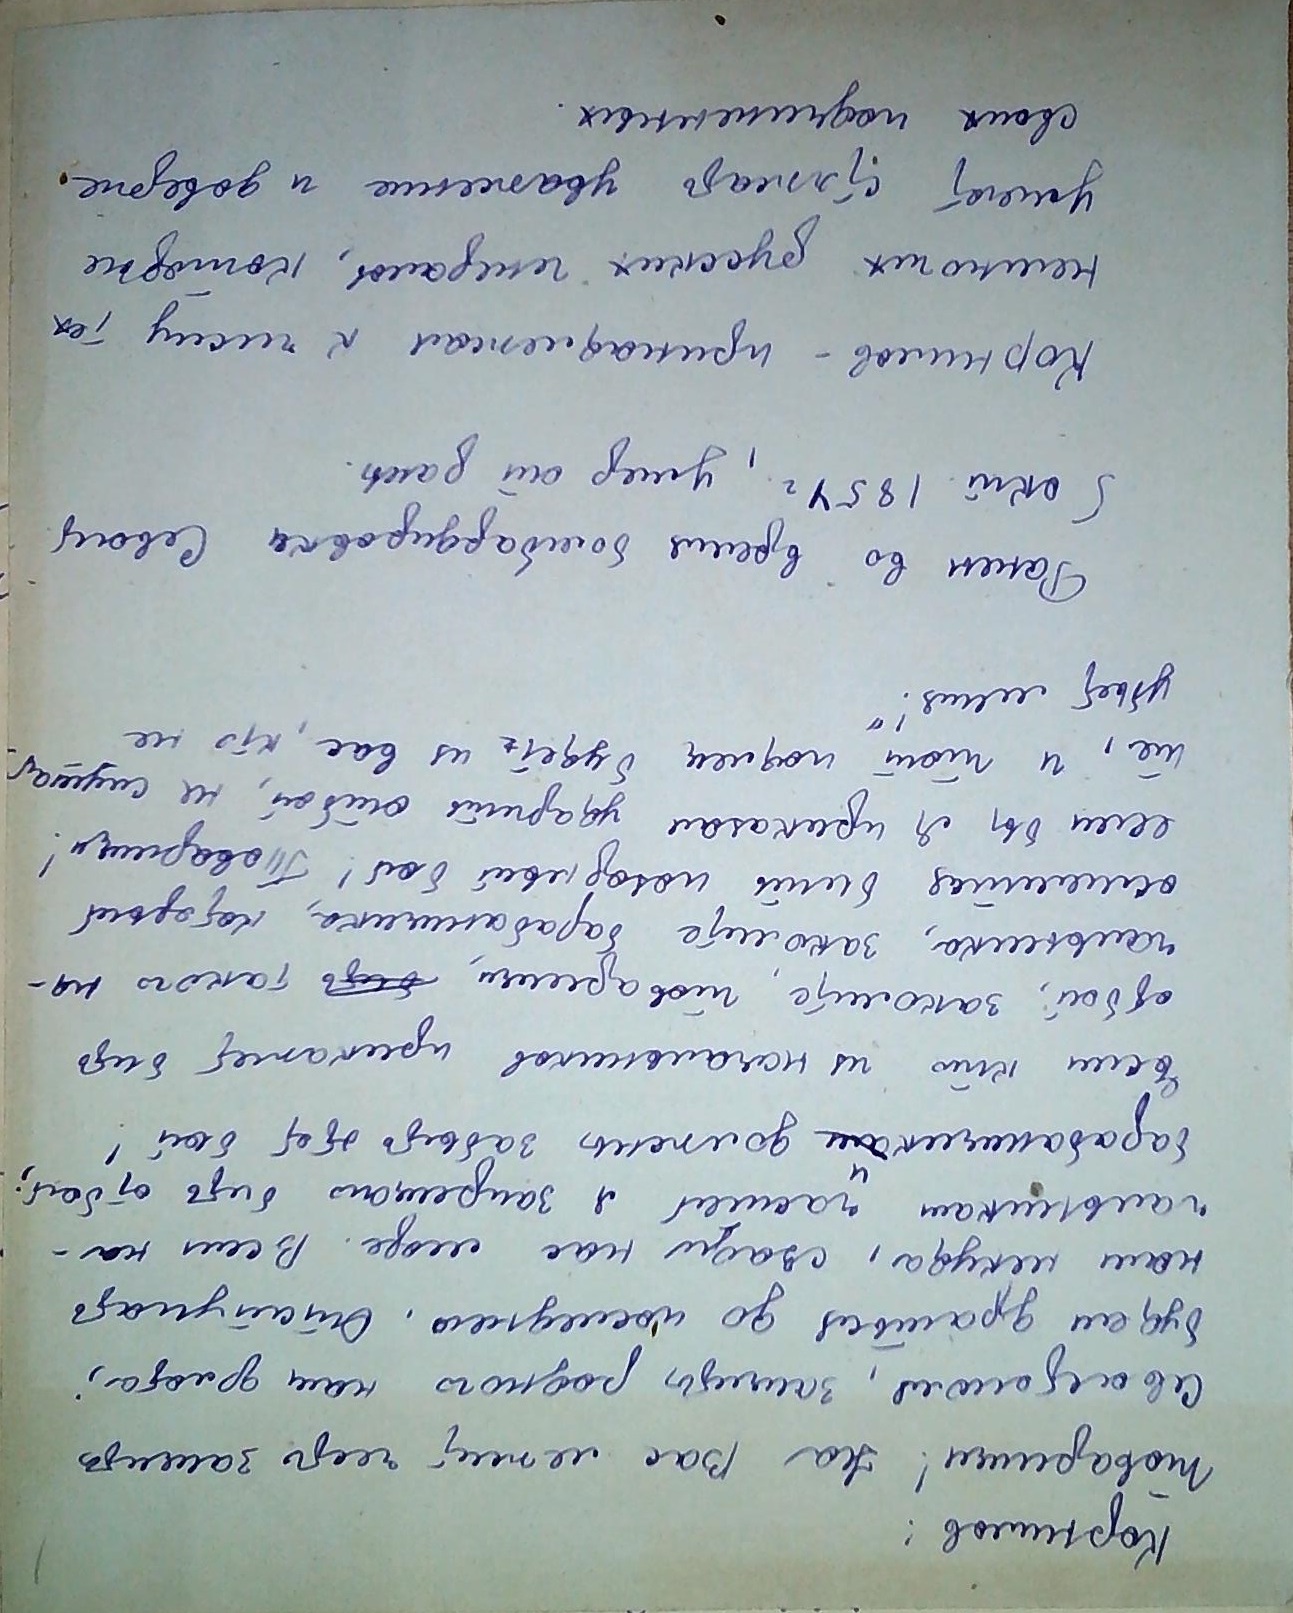 Корнилов:
Товарищи! На Вас лежит честь защиты
Севастополя, защиты родного нам флота,
будем драться до последнего. Отступать
нам некуда, сзади нас море. Всем на-
чальникам частей я запрещаю бить отбой,
барабанщики должны забыть этот бой!
Если кто из начальников прикажет бить
отбой, заколите, товарищи, такого на-
чальника, заколите барабанщика, который
осмелится бить позорный бой! Товарищи!
если бы я приказал ударить отбой, не слушай
те, и тот подлец будет из вас, кто не
убьет меня!"
Ранен во время бомбардировки Севаст
5 окт 1854 г, умер от ран.
Корнилов - принадлежал к числу тех
немногих русских генералов, которые
умеют стяжать уважение и доверие
своих подчиненных.